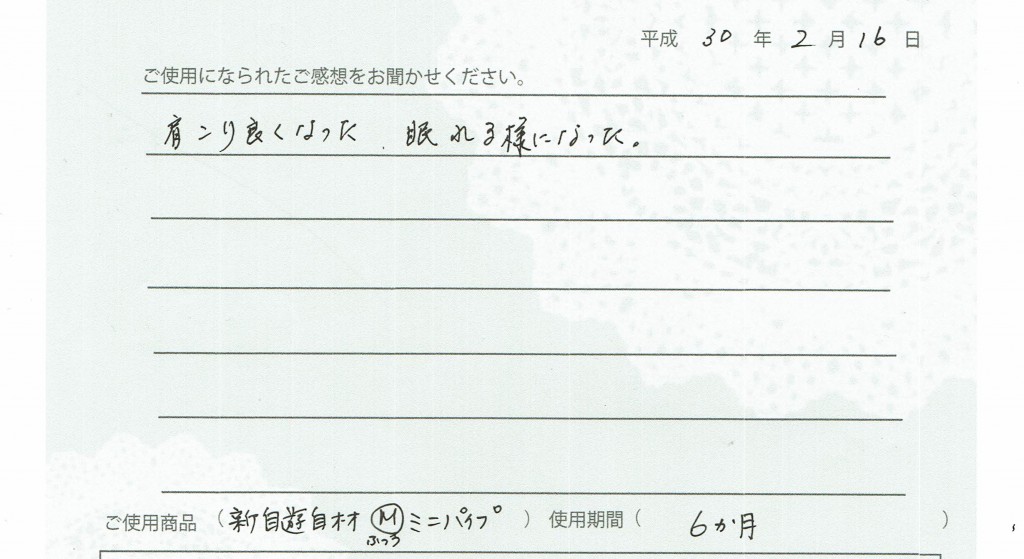 平成 30 年 2 月 16 日
ご使用になられたご感想をお聞かせください。
肩こり良くなった 、眠れる様になった。
ご使用商品 ( 新自遊自材 Ⓜ ミニパイプ ) 使用期間 ( 6か月 )
ふつう